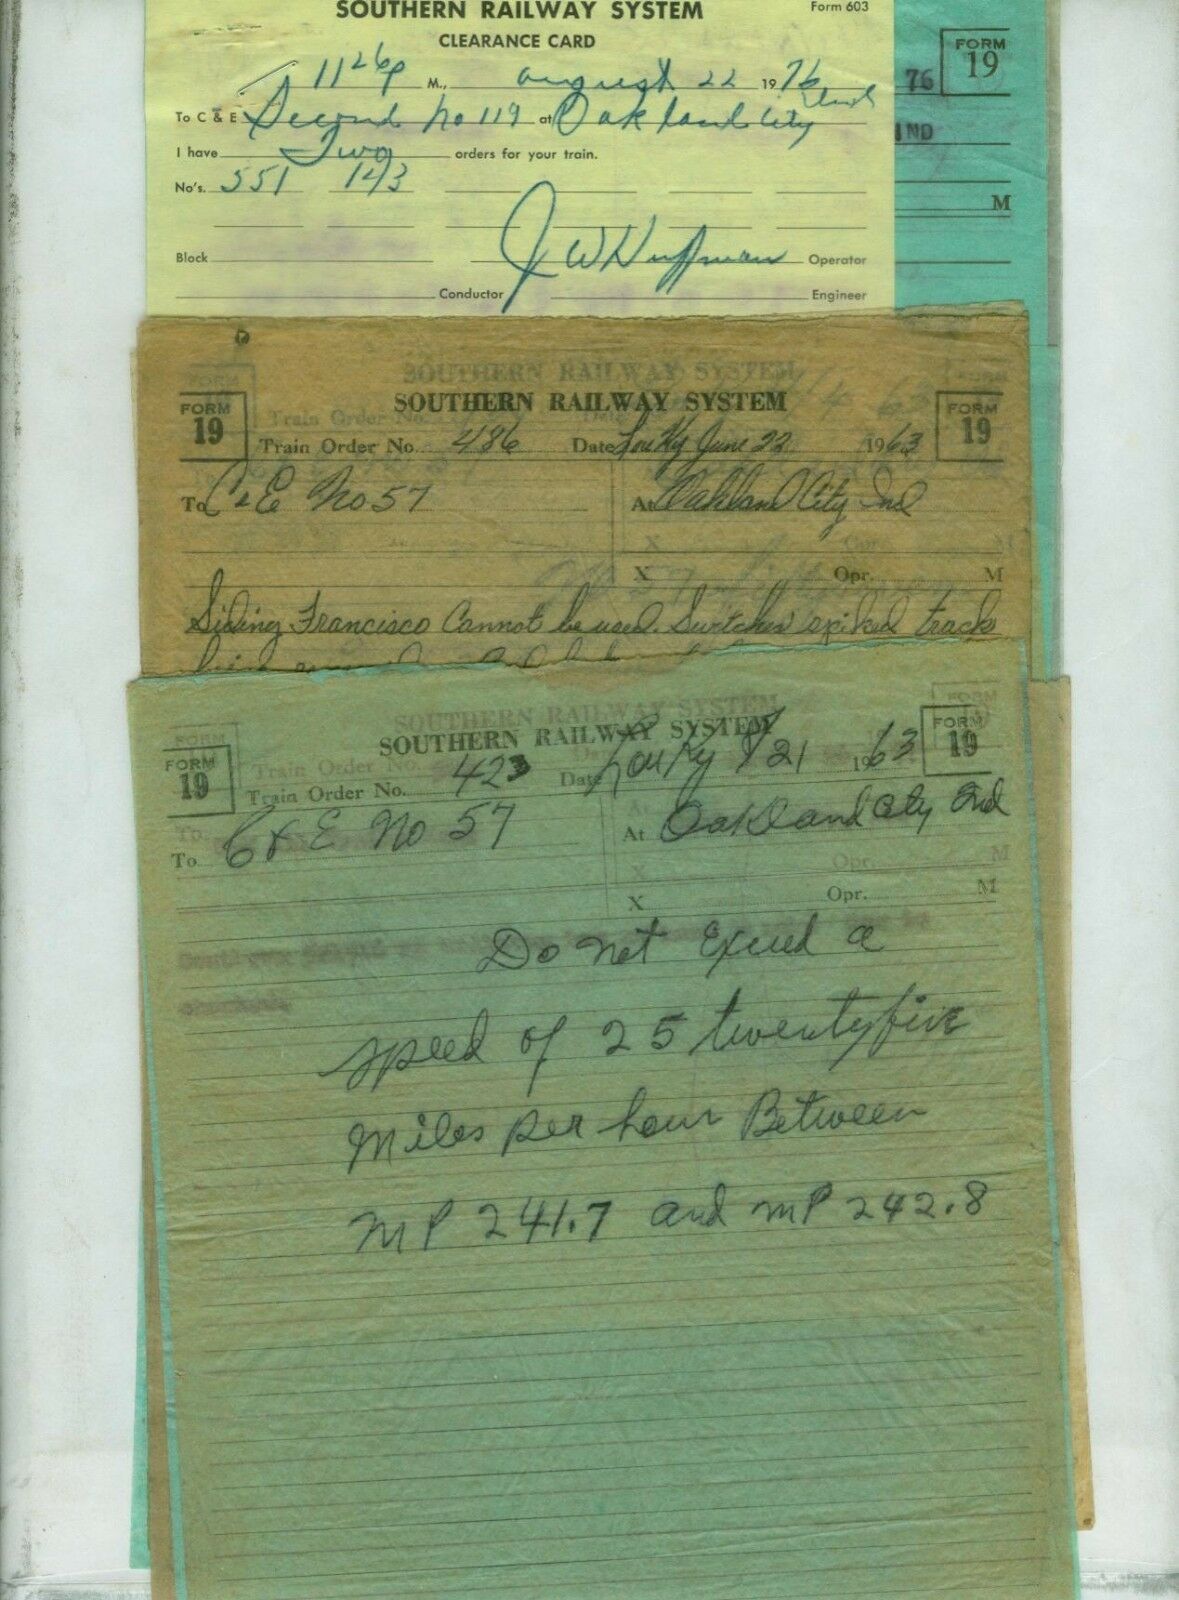 SOUTHERN RAILWAY SYSTEM Form 603
CLEARANCE CARD
11 26 P M., August 22 1976
To C & E Second No 119 at Oakland City Ind
I have Two orders for your train.
No's. 551 1213
Block J W Huffman Operator
Conductor Engineer
76 FORM 19
IND
M
SOUTHERN RAILWAY SYSTEM
FORM 19 SOUTHERN RAILWAY SYSTEM FORM 19
Train Order No. 486 Date Lou Ky June 22 1963
To C & E No 57 At Oakland City Ind
X
X Opr. M
Siding Francisco Cannot be used. Switches spiked track
SOUTHERN RAILWAY SYSTEM
FORM 19 SOUTHERN RAILWAY SYSTEM FORM 19
Train Order No. 423 Date Lou Ky 9/21 1963
To C & E No 57 At Oakland City Ind
X Opr. M
Do not Exceed a
speed of 25 twentyfive
Miles per hour Between
MP 241.7 and MP 242.8